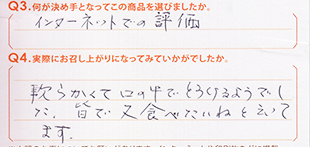 Q3.何が決め手となってこの商品を選びましたか。
インターネットでの評価
Q4.実際にお召し上がりになってみていかがでしたか。
軟らかくて口の中でとろけるようでし
た。皆で又食べたいねと云って
ます。